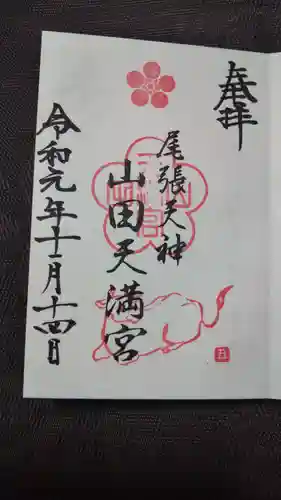 奉拝
尾張天神
山田天満宮
令和元年十一月十四日